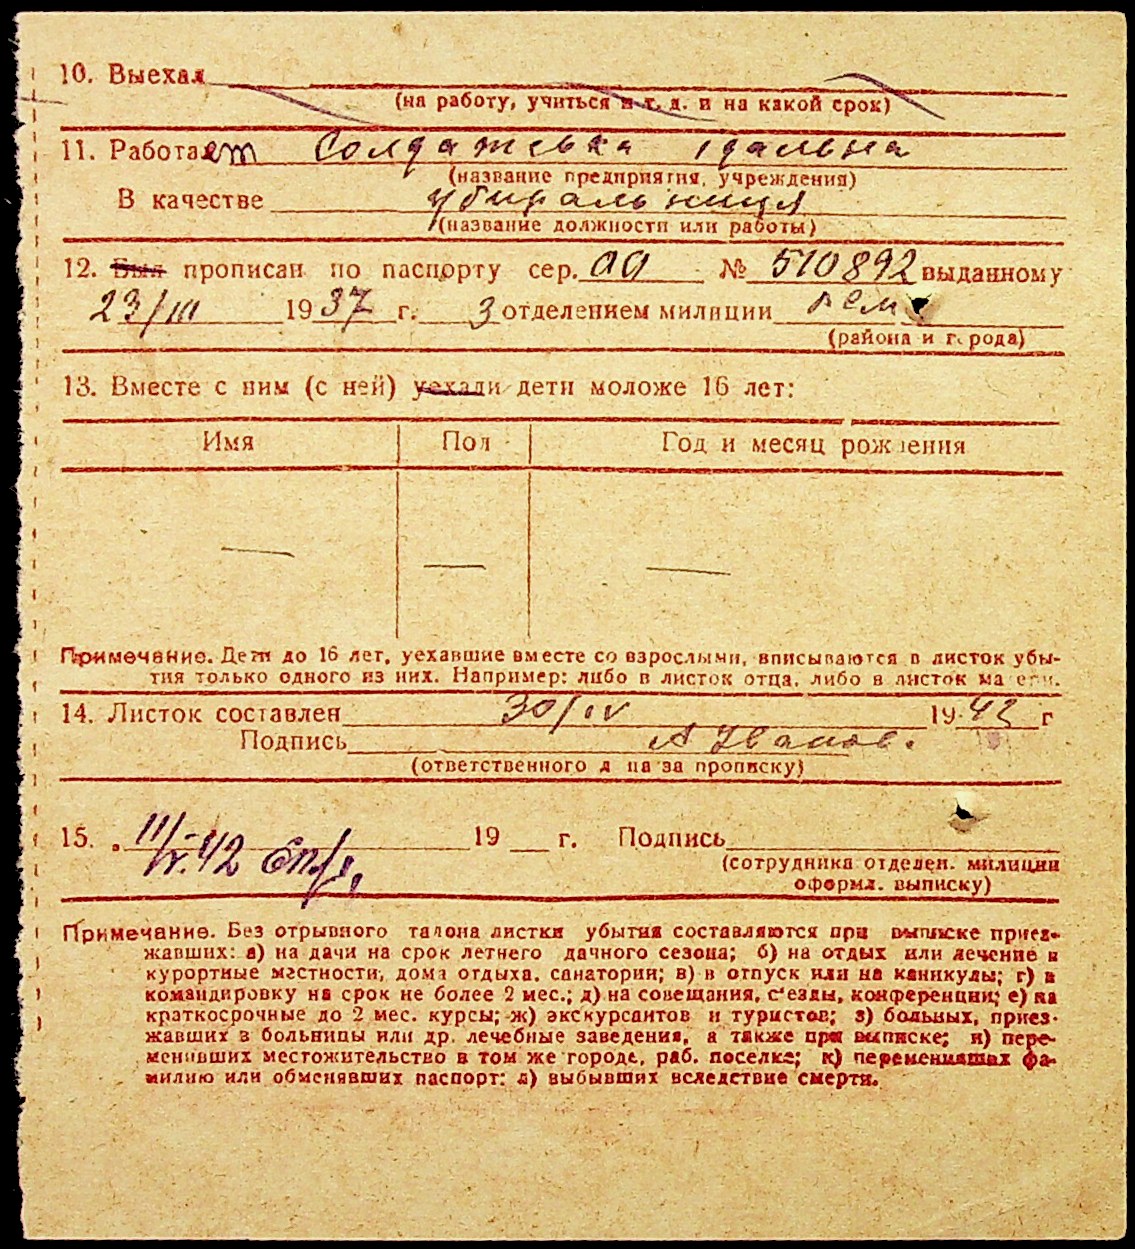 10. Выехал
(на работу, учиться и т. д. и на какой срок)
11. Работает Солдатська їдальня
(название предприятия, учреждения)
В качестве убиральниця
(название должности или работы)
12. Был прописан по паспорту сер. АО № 510892 выданному
23/III 1937 г. 3 отделением милиции
(района и города)
13. Вместе с ним (с ней) уехали дети моложе 16 лет:
Имя Пол Год и месяц рождения
— — —
Примечание. Дети до 16 лет, уехавшие вместе со взрослыми, вписываются в листок убы-
тия только одного из них. Например: либо в листок отца, либо в листок матери.
14. Листок составлен 30/IV 1942 г
Подпись А Иванов.
(ответственного лица за прописку)
15. 11/V-42 19 г. Подпись
(сотрудника отделен. милиции
оформл. выписку)
Примечание. Без отрывного талона листки убытия составляются при выписке приез-
жавших: а) на дачи на срок летнего дачного сезона; б) на отдых или лечение в
курортные местности, дома отдыха, санатории; в) в отпуск или на каникулы; г) в
командировку на срок не более 2 мес.; д) на совещания, с'езды, конференции; е) на
краткосрочные до 2 мес. курсы; ж) экскурсантов и туристов; з) больных, приез-
жавших в больницы или др. лечебные заведения, а также при выписке; и) пере-
менивших местожительство в том же городе, раб. поселке; к) переменивших фа-
милию или обменявших паспорт; л) выбывших вследствие смерти.